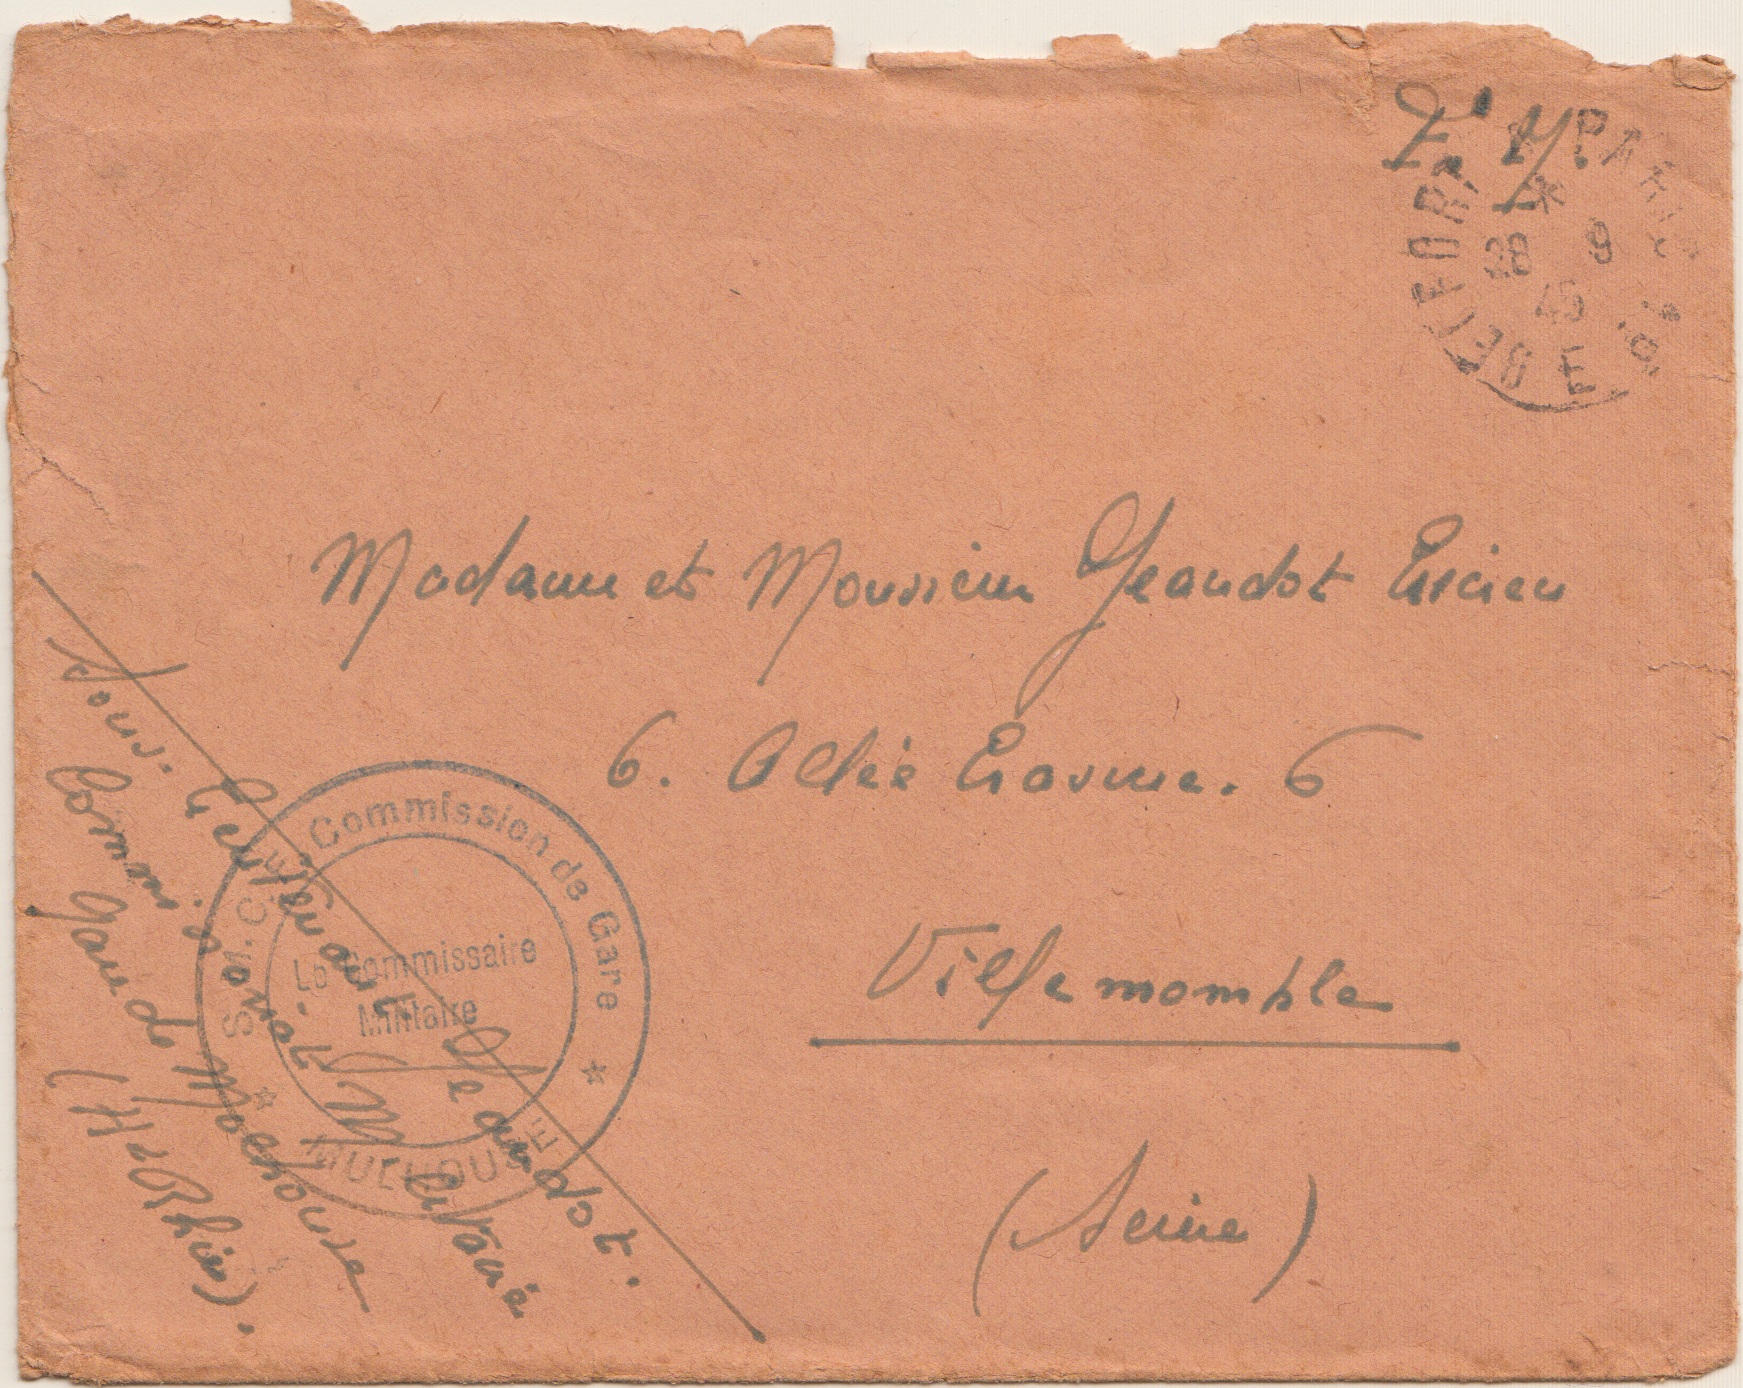 F. M.
BELFORT A PARIS
28 9
45
E
Madame et Monsieur Jeandot Lucien
6. Allée Erasme. 6
Villemomble
(Seine)
Sous. Lieutenant. Jeandot.
Commissariat Militaire
Gare de Mulhouse
(Ht Rhin).
Commission de Gare
Le Commissaire
Militaire
MULHOUSE